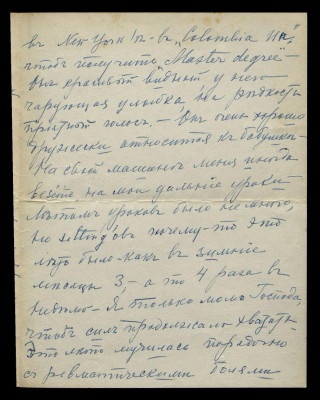 въ New-York'ѣ - въ „Columbia Un."
чтобъ получить „Master degree" -
Онъ красивый видный у него
чарующая улыбка и на рѣдкость
пріятный голосъ, - Онъ очень хорошо
дружески относится къ бабушкѣ -
На своей машинѣ меня иногда
возитъ на мои дальніе уроки -
Лѣтомъ уроковъ было не много,
но sitting'овъ почему-то это
лѣто было какъ въ зимніе
мѣсяцы 3, - а то 4 раза въ
недѣлю - Я только молю Господа,
чтобъ силъ продолжало хватать
Это лѣто мучилась порядочно
съ ревматическими болями